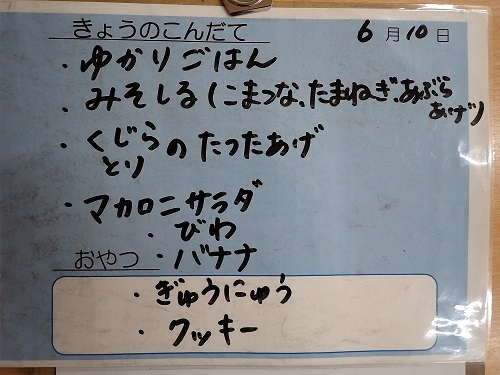 きょうのこんだて 6月10日
・ゆかりごはん
・みそしる(こまつな、たまねぎ、あぶら
あげ)
・くじらのたつたあげ
とり
・マカロニサラダ
・びわ
おやつ ・バナナ
・ぎゅうにゅう
・クッキー